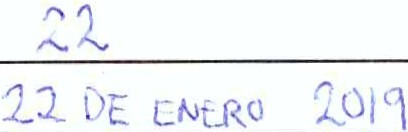 22
22 DE ENERO 2019